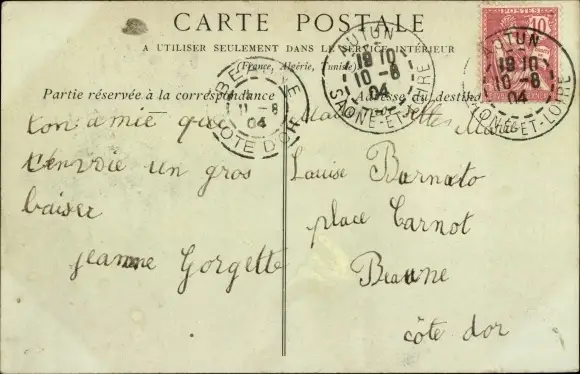 CARTE POSTALE
A UTILISER SEULEMENT DANS LE SERVICE INTÉRIEUR
(France, Algérie, Tunisie)
Partie réservée à la correspondance
Adresse du destina
ton amié que
t'envoie un gros
baiser
jeanne Gorgette
Louise Barnato
place Carnot
Beaune
côte dor
AUTUN
19 10
10 - 8
04
SAONE-ET-LOIRE
AUTUN
19 10
10 - 8
04
SAONE-ET-LOIRE
BE NE
11 - 8
04
COTE D'OR
10